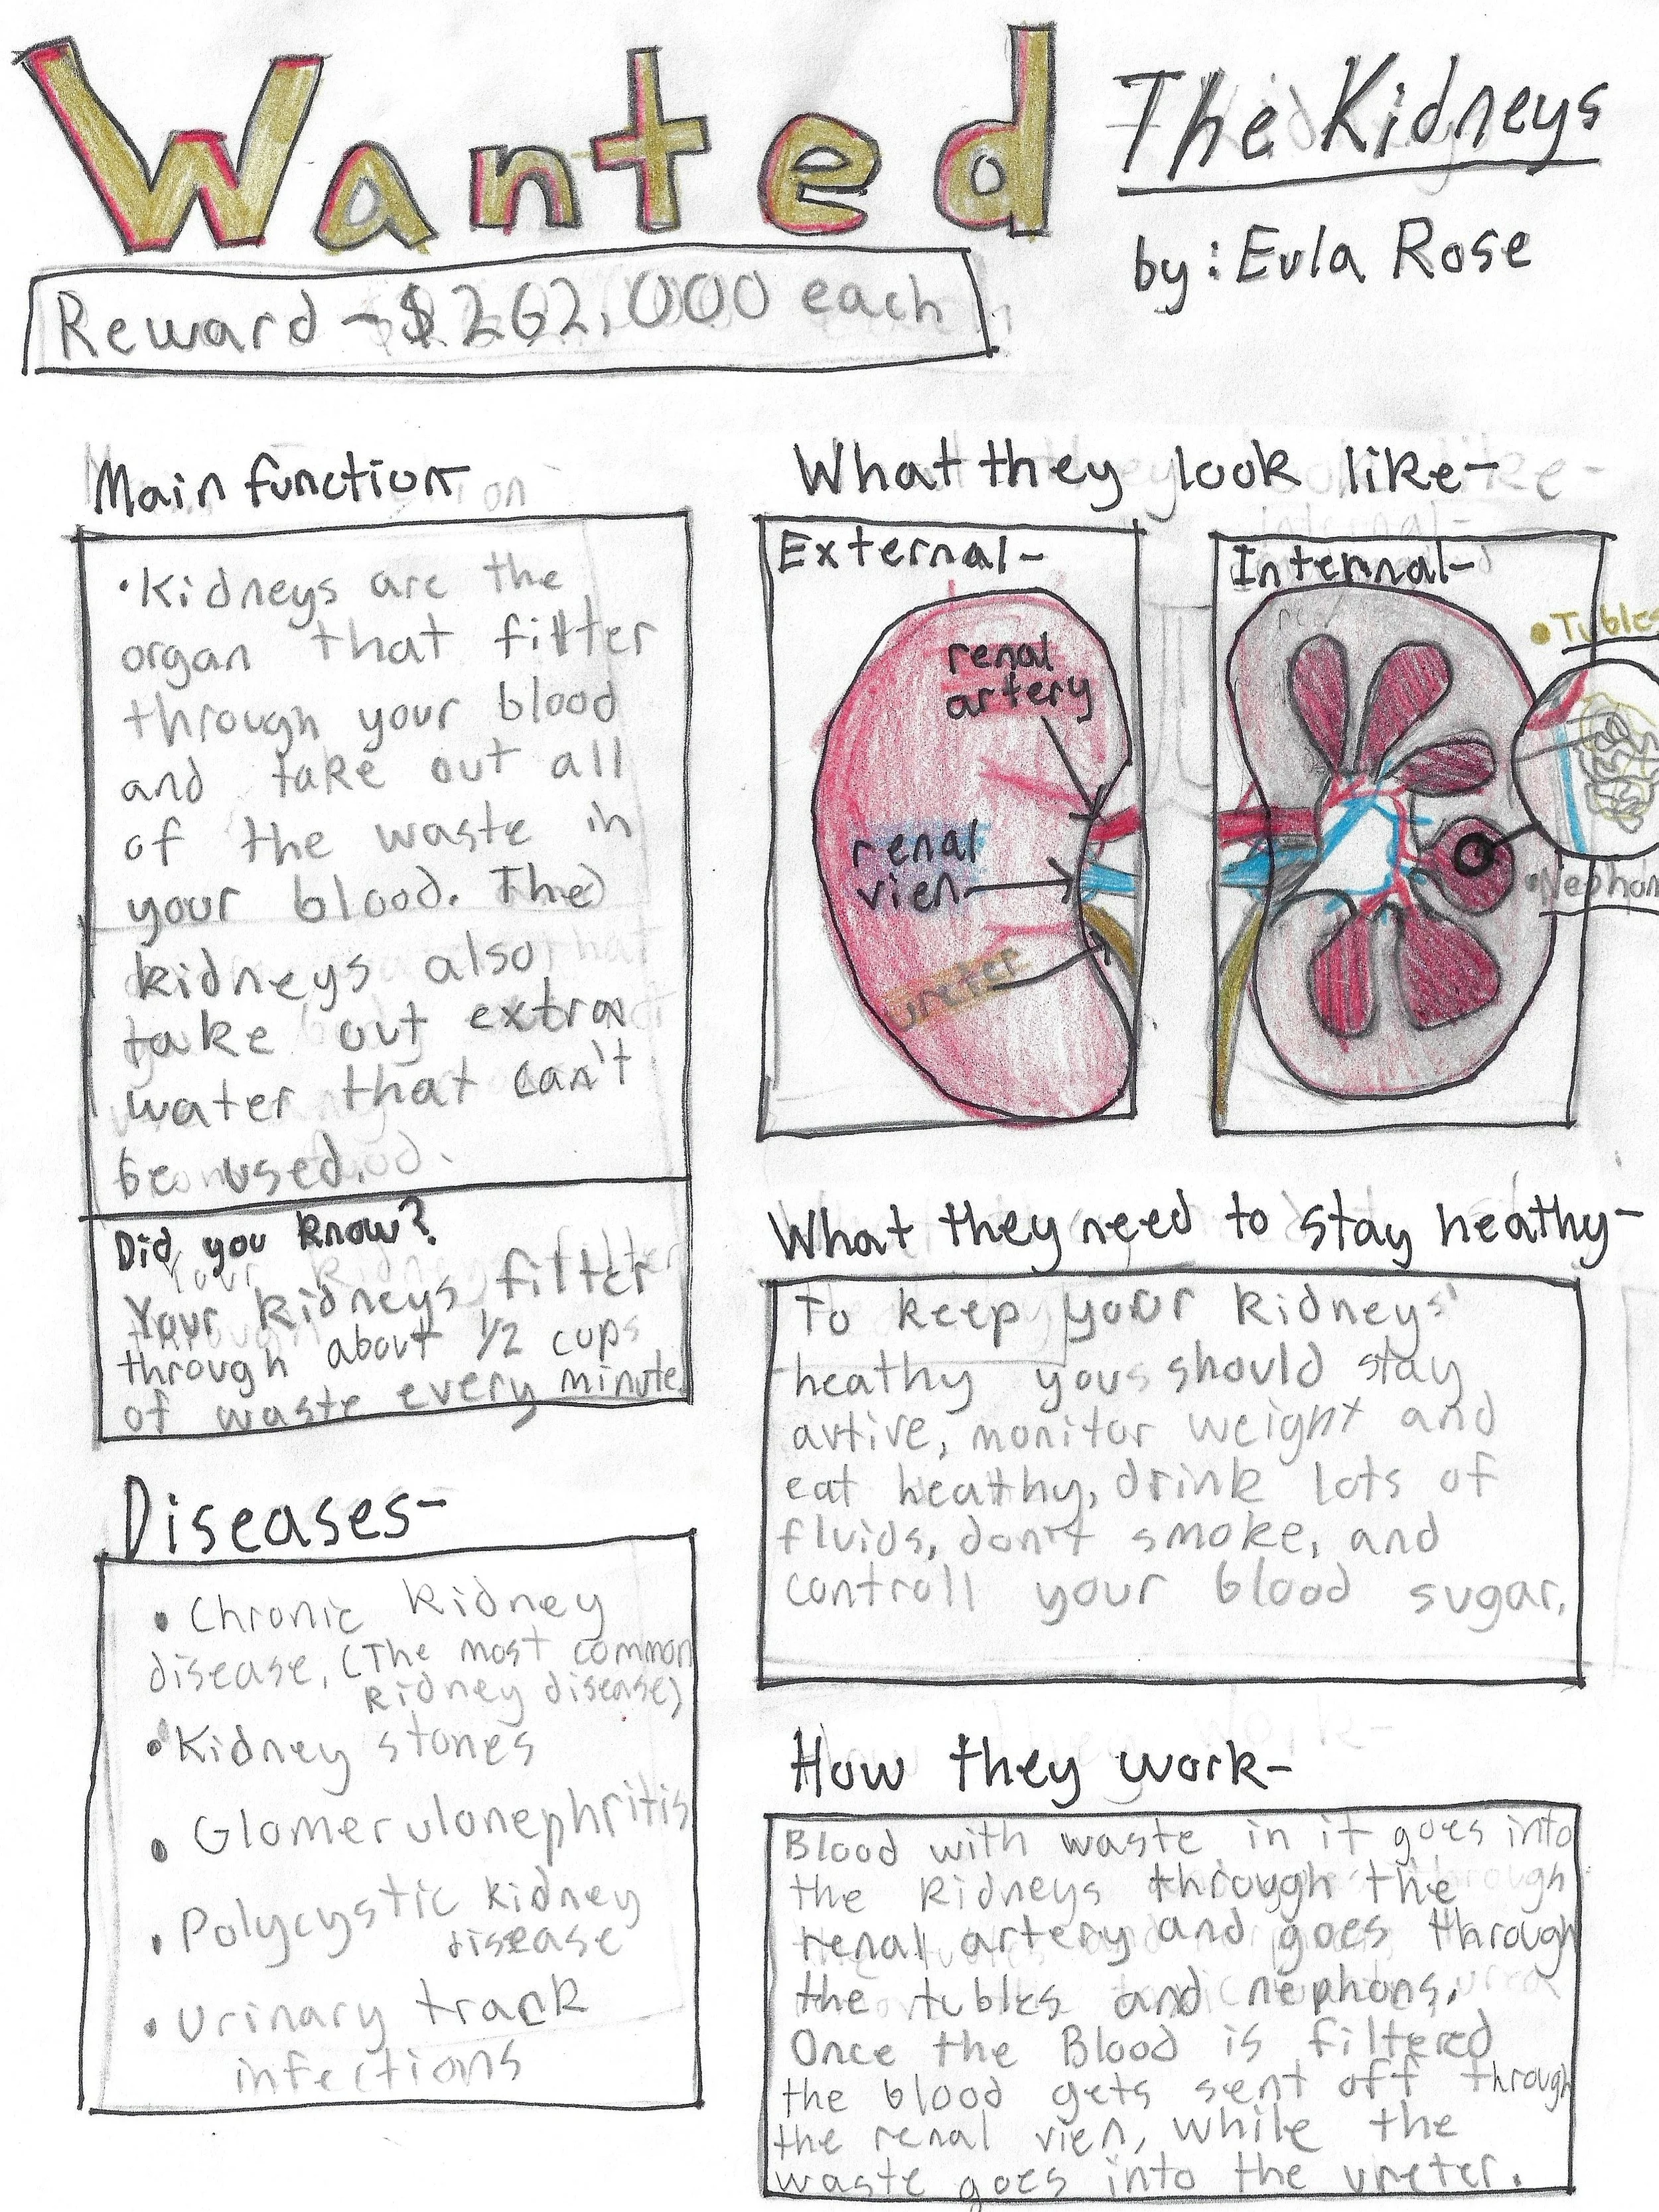 Wanted
The Kidneys
by: Eula Rose
Reward - $262,000 each
Main function
• Kidneys are the
organ that filter
through your blood
and take out all
of the waste in
your blood. The
kidneys also
take out extra
water that can't
be used.
Did you know?
Your kidneys filter
through about 1/2 cups
of waste every minute
Diseases-
• Chronic kidney
disease, (The most common
kidney disease)
• Kidney stones
• Glomerulonephritis
• Polycystic kidney
disease
• Urinary track
infections
What they look like-
External-
renal
artery
renal
vien
ureter
Internal-
• Tubles
• Nephon
What they need to stay heathy-
To keep your kidneys
heathy you should stay
avtive, monitor weight and
eat heathy, drink lots of
fluids, don't smoke, and
controll your blood sugar.
How they work-
Blood with waste in it goes into
the kidneys through the
renal artery and goes through
the tubles and nephons.
Once the Blood is filtered
the blood gets sent off through
the renal vien, while the
waste goes into the ureter.